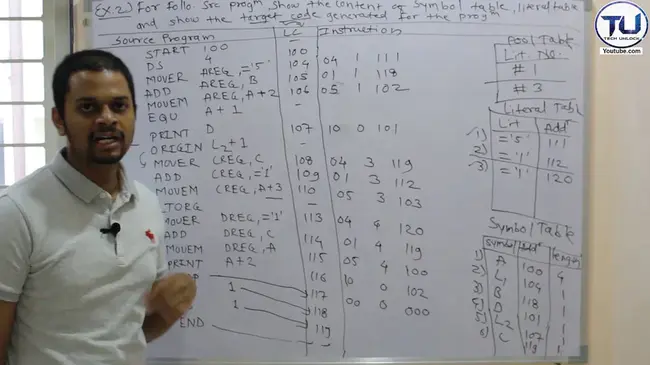 Ex.2) For follo. Src progm, show the content of Symbol table, literal table
and show the target code generated for the prog
Source Program LC Instruction
START 100 -
DS 4 100
MOVER AREG, ='5' 104 04 1 111
ADD AREG, B 105 01 1 118
MOVEM AREG, A+2 106 05 1 102
EQU A+1 -
PRINT D 107 10 0 101
ORIGIN L2+1 -
MOVER CREG, C 108 04 3 119
ADD CREG, ='1' 109 01 3 112
MOVEM CREG, A+3 110 05 3 103
LTORG
MOVER DREG, ='1' 113 04 4 120
ADD DREG, C 114 01 4 119
MOVEM DREG, A 115 05 4 100
PRINT A+2 116 10 0 102
1 117 00 0 000
1 118
END 119
Pool Table
Lit No.
#1
#3
Literal Table
Lit Addr
1) ='5' 111
2) ='1' 112
3) ='1' 120
Symbol Table
Symbol Addr length
1) A 100 4
2) L1 104 1
3) B 118 1
4) D 101 1
5) L2 107 1
6) C 119 1
TU
TECH UNLOCK
Youtube.com